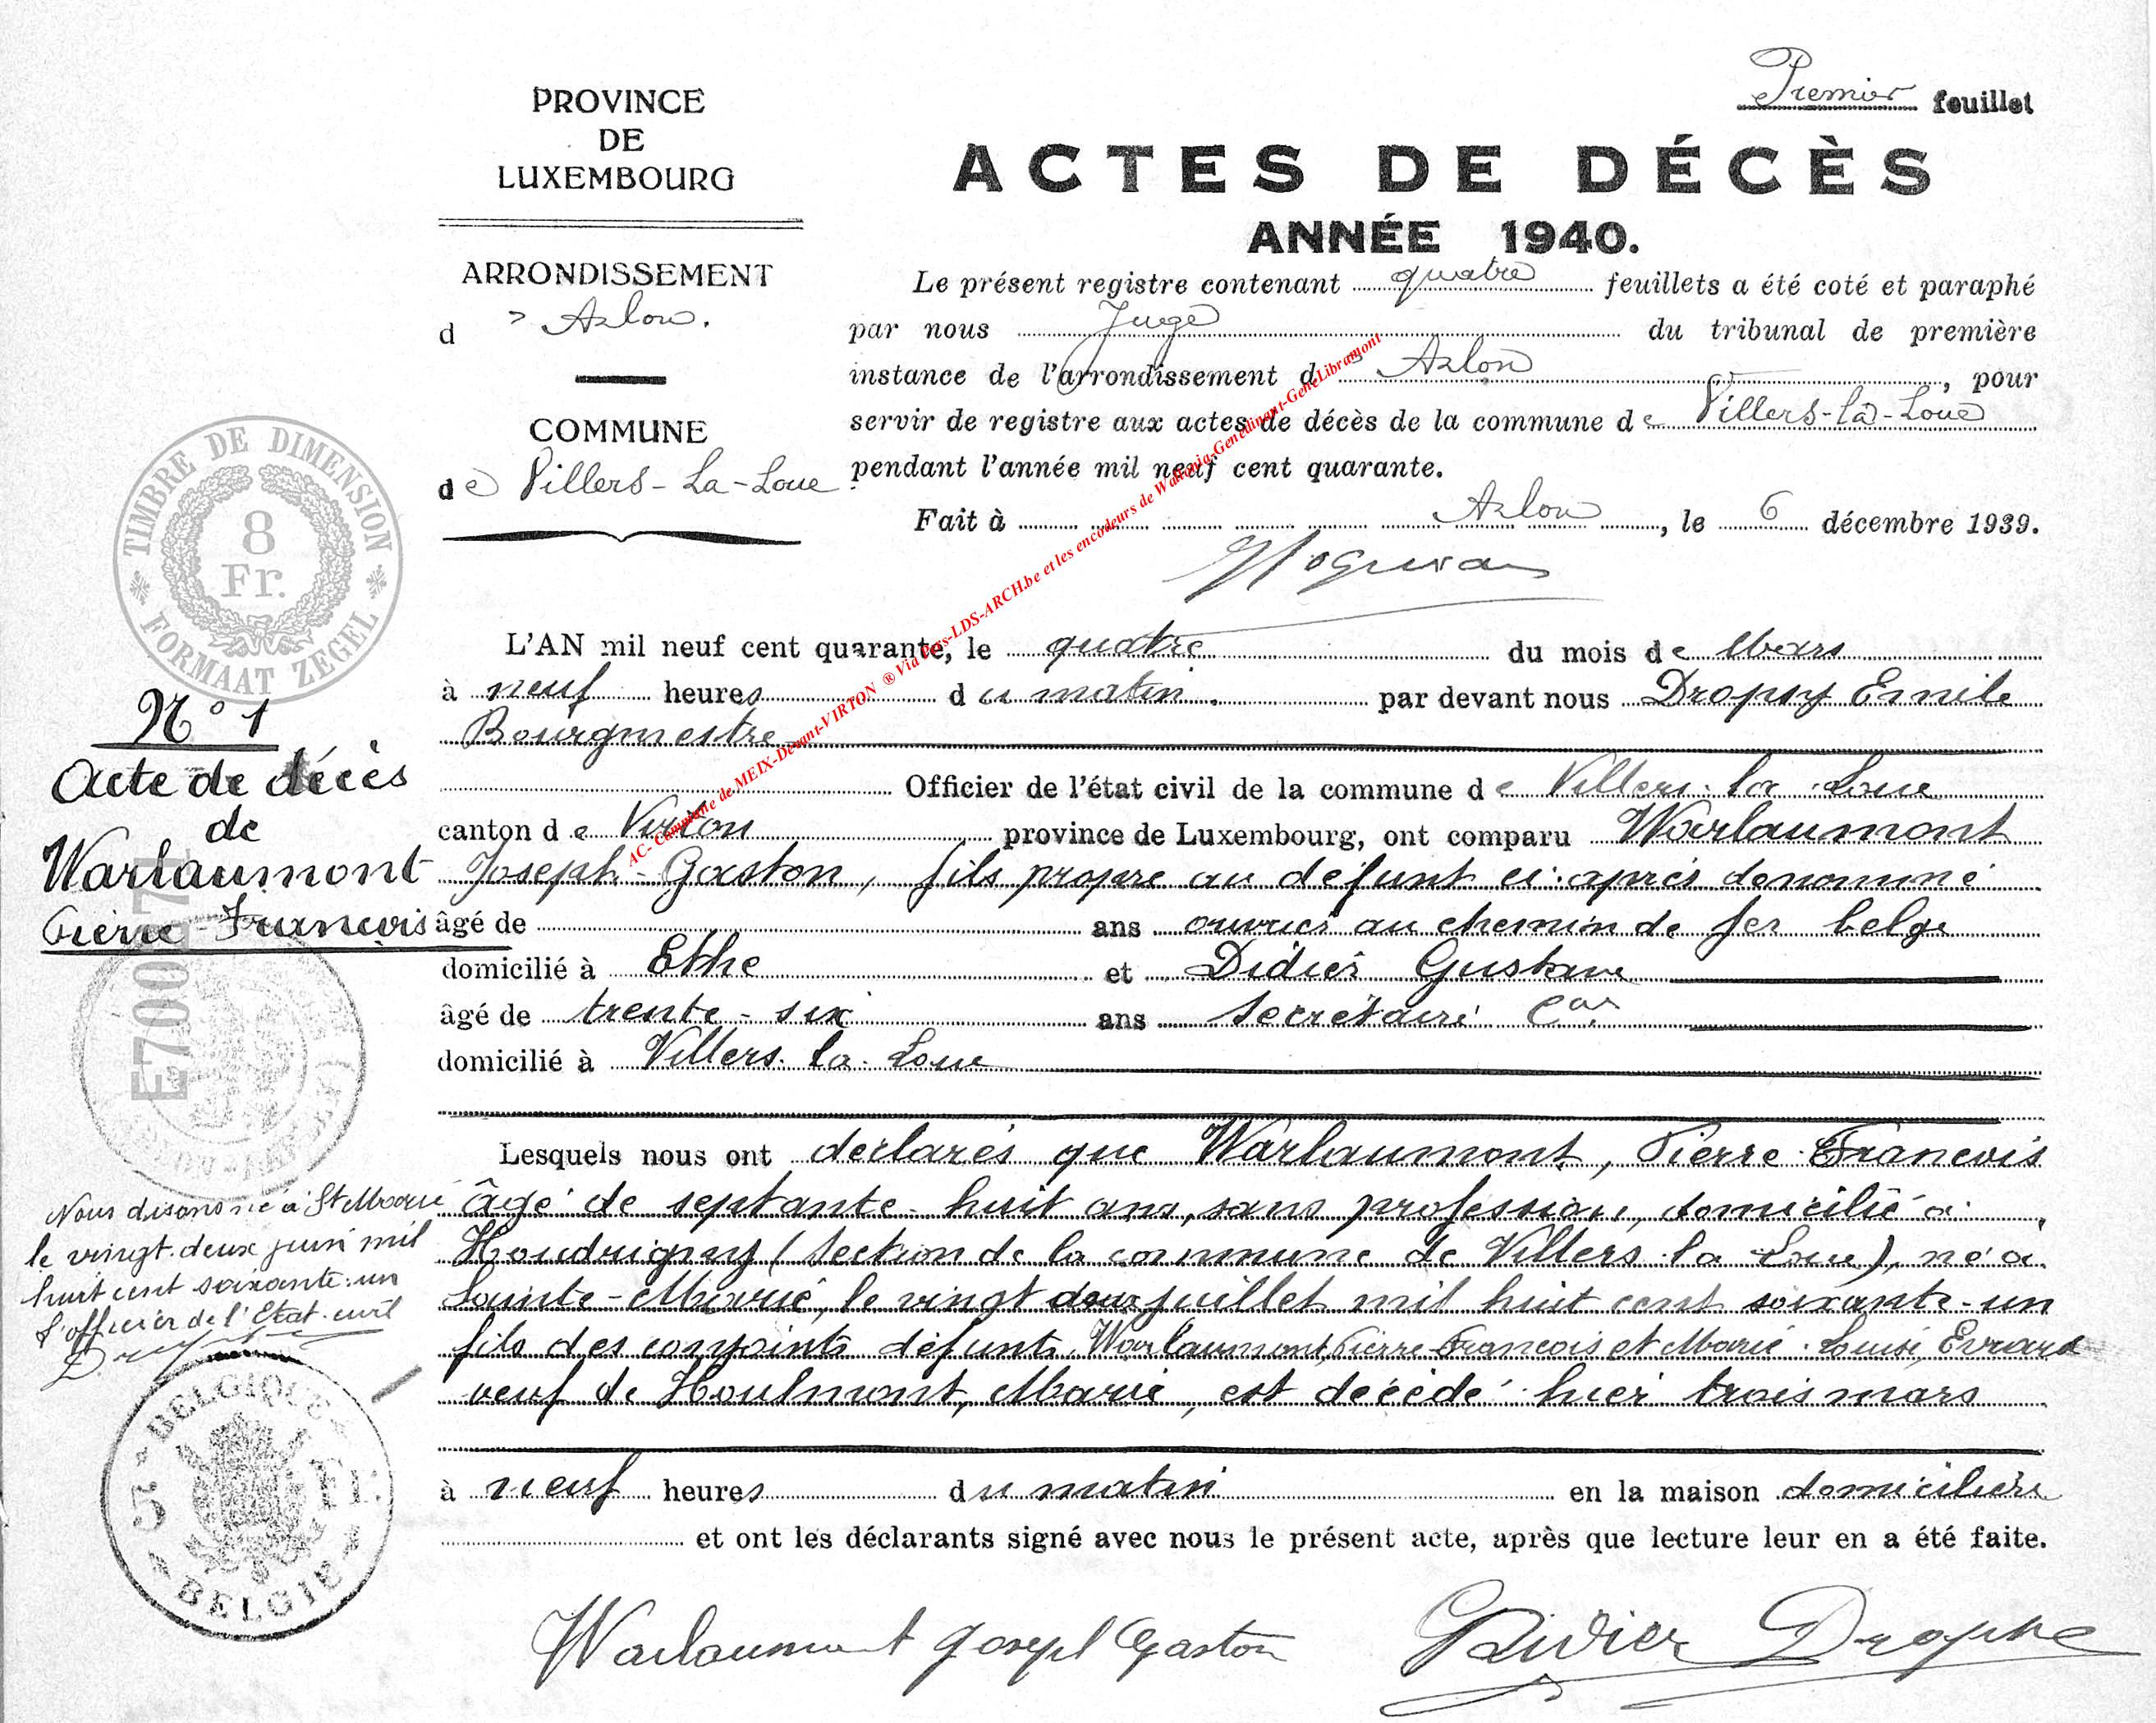 Premier feuillet
PROVINCE
DE
LUXEMBOURG
ARRONDISSEMENT
d' Arlon.
COMMUNE
de Villers-La-Loue
ACTES DE DÉCÈS
ANNÉE 1940.
Le présent registre contenant quatre feuillets a été coté et paraphé
par nous Juge du tribunal de première
instance de l'arrondissement d' Arlon, pour
servir de registre aux actes de décès de la commune de Villers-La-Loue
pendant l'année mil neuf cent quarante.
Fait à Arlon, le 6 décembre 1939.
TIMBRE DE DIMENSION
8
Fr.
FORMAAT ZEGEL
L'AN mil neuf cent quarante, le quatre du mois de Mars
à neuf heures du matin. par devant nous Dropsy Emile
Bourgmestre
Officier de l'état civil de la commune de Villers-la-Loue
canton de Virton province de Luxembourg, ont comparu Warlaumont
Joseph-Gaston, fils propre au défunt ci-après dénommé
âgé de ans ouvrier au chemin de fer belge
domicilié à Ethe et Didier Gustave
âgé de trente-six ans Secrétaire Cal
domicilié à Villers-la-Loue
N° 1
Acte de décès
de
Warlaumont
Pierre-François
E700171
Lesquels nous ont declarés que Warlaumont, Pierre-François
âgé de septante-huit ans, sans profession, domicilié à
Houdrigny (section de la commune de Villers-la-Loue), né à
Sainte-Marie, le vingt deux juillet mil huit cent soixante-un
fils des conjoints défunts Warlaumont, Pierre François et Marie-Louise Evrard
veuf de Houlmont, Marie, est décédé hier trois mars
à neuf heures du matin en la maison domicilière
et ont les déclarants signé avec nous le présent acte, après que lecture leur en a été faite.
Nous disons né à St Marie
le vingt-deux juin mil
huit cent soixante-un
l'officier de l'Etat-civil
BELGIQUE
5 Fr.
BELGIE
Warlaumont Joseph Gaston
GDidier
Dropsy
AC-Commune de MEIX-Devant-VIRTON ® Via Vers-LDS-ARCH.be et les encodeurs de Wallonia-Genedinant-GeneLibramont